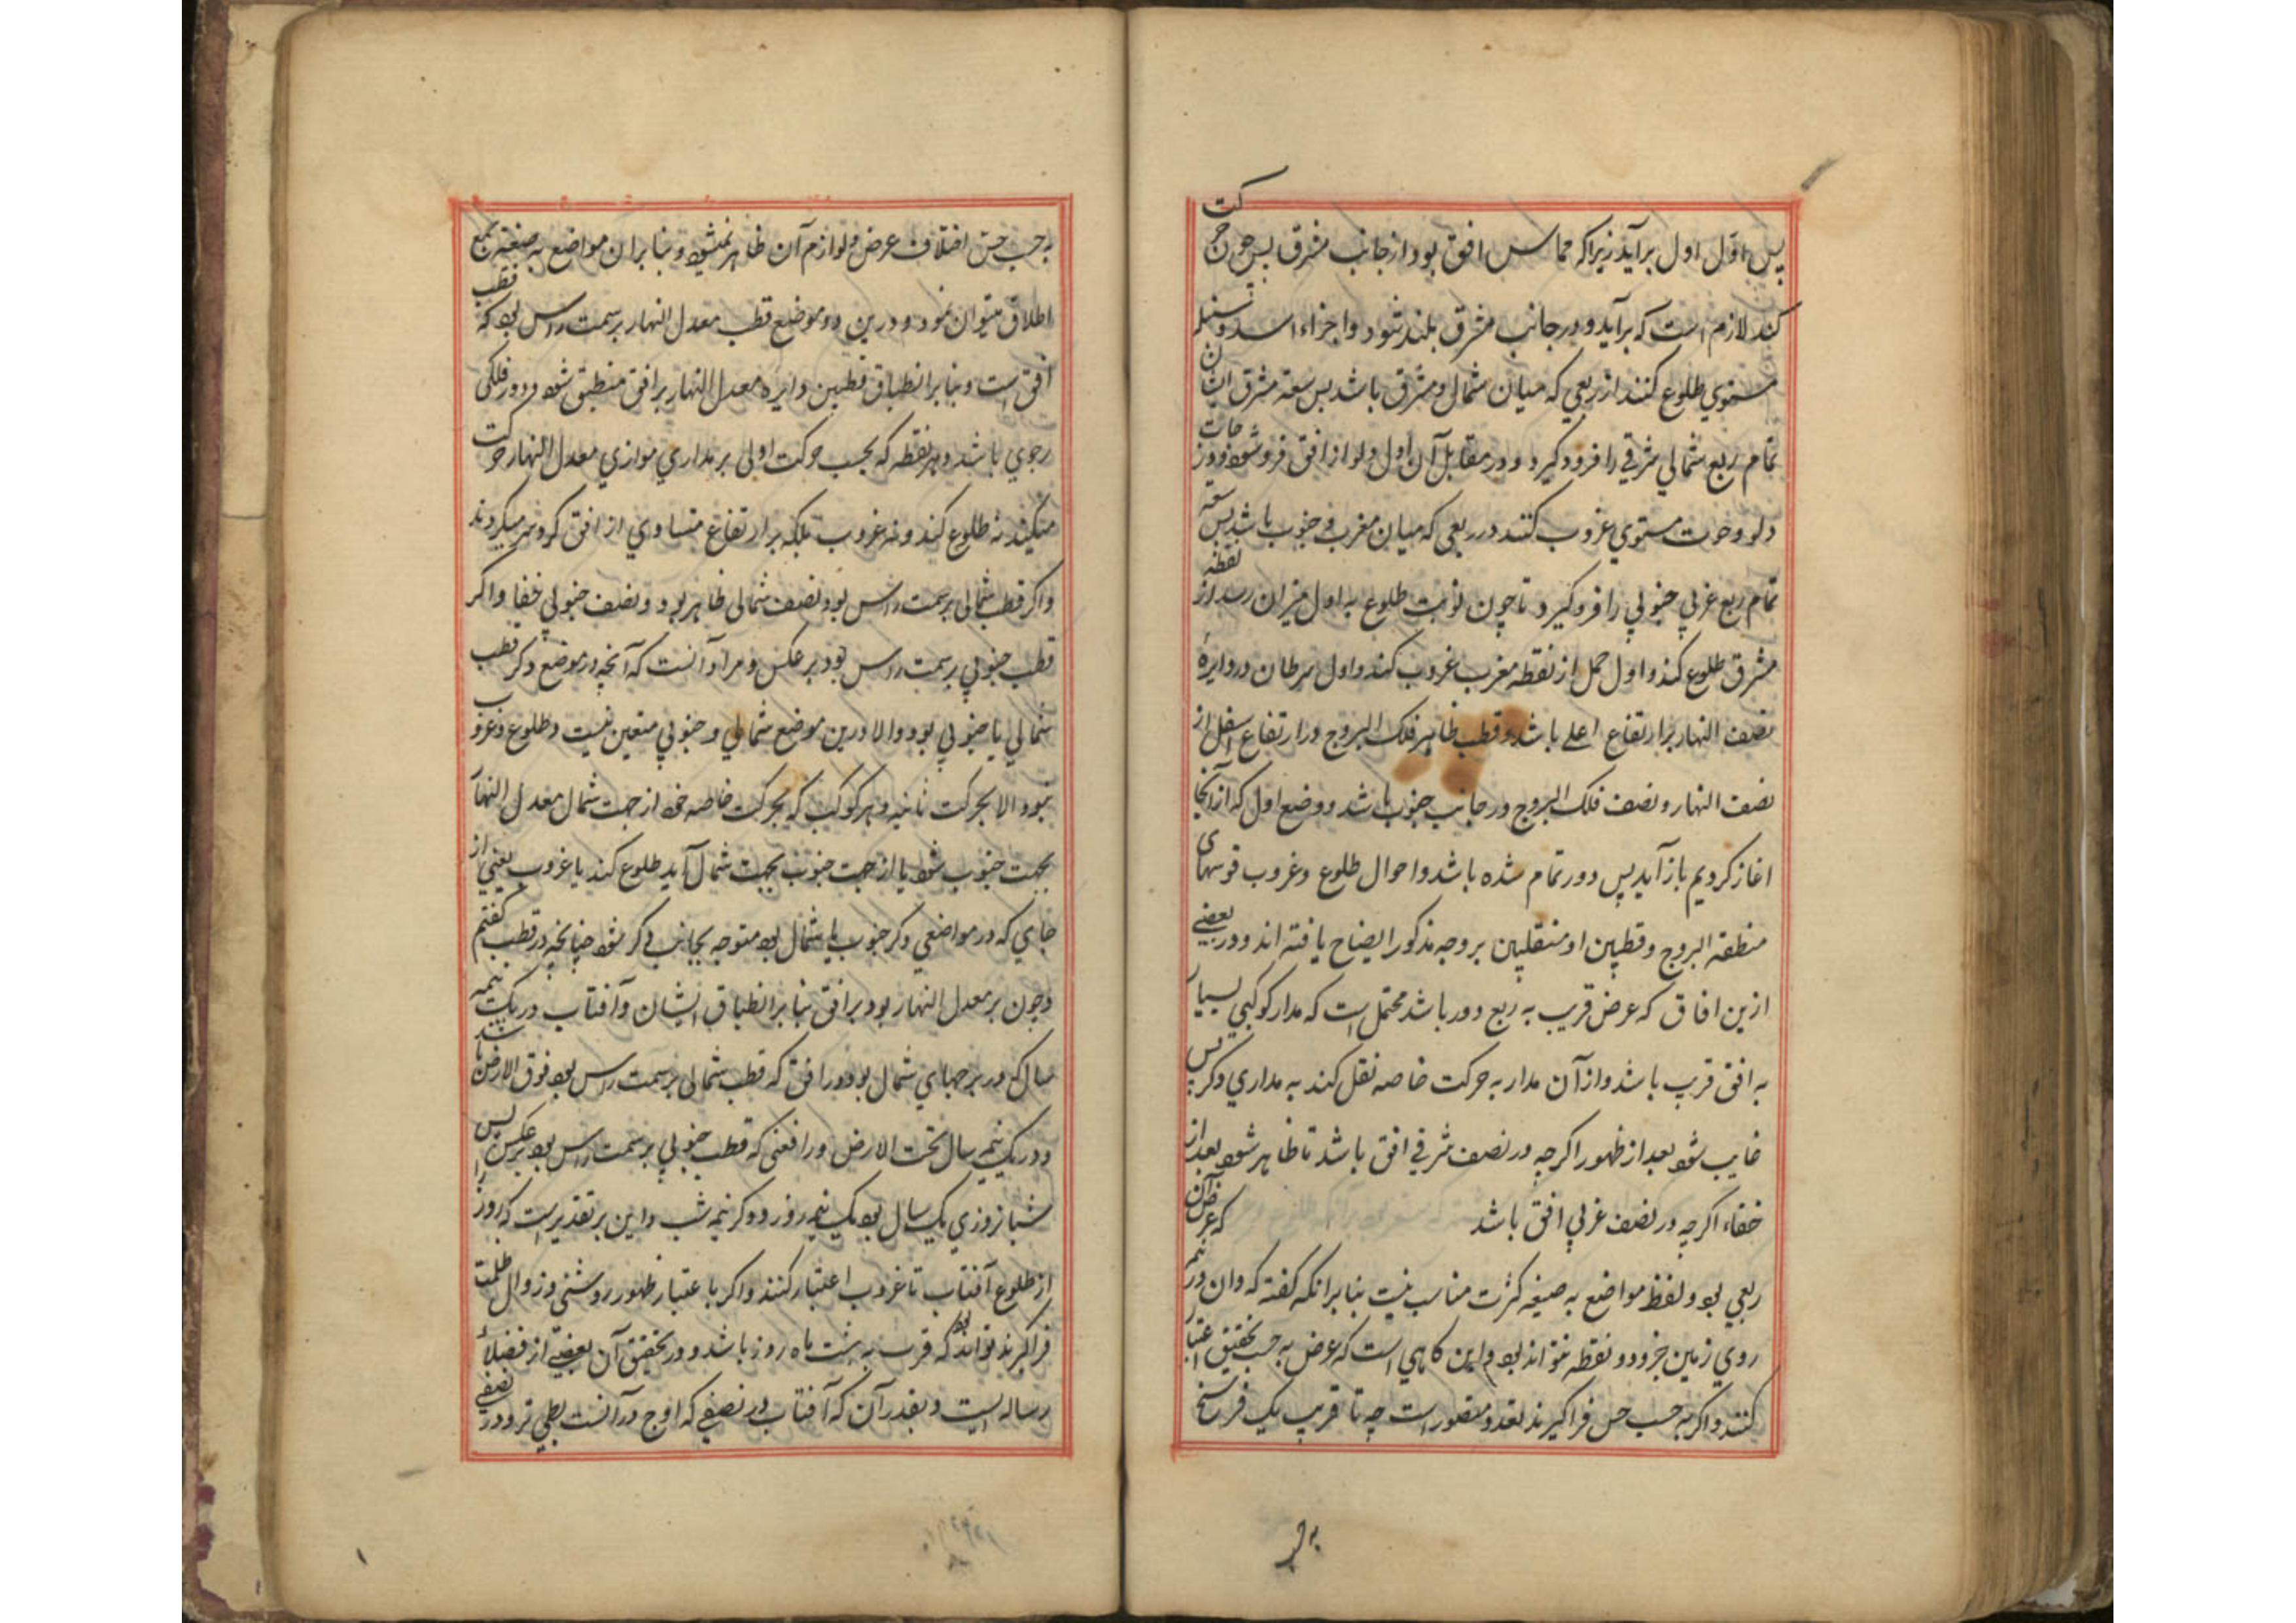 پس اول اول برآید زیرا که مماس افق بود از جانب مشرق پس چون حرکت
کند لازم است که برآید و در جانب مشرق بلند شود و اجزاء اسد و سنبله
مستوی طلوع کنند از ربعی که میان شمال و مشرق باشد پس سعة مشرق ایشان
تمام ربع شمالی شرقی را فرو گیرد و در مقابل آن اول دلو از افق فرو شود و درجات
دلو و حوت مستوی غروب کنند در ربعی که میان مغرب و جنوب باشد پس سعة
تمام ربع غربی جنوبی را فرو گیرد تا چون نوبت طلوع به اول میزان رسد از نقطه
مشرق طلوع کند و اول حمل از نقطه مغرب غروب کند و اول سرطان در دایرۀ
نصف النهار بر ارتفاع اعلی باشد و قطب ظاهر فلک البروج در ارتفاع اسفل از
نصف النهار و نصف فلک البروج در جانب جنوب باشد و وضع اول که از آنجا
اغاز کردیم باز آید پس دور تمام شده باشد و احوال طلوع و غروب قوسهای
منطقة البروج و قطبین او منقلبین بر وجه مذکور ایضاح یافته اند و در بعضی
ازین افاق که عرض قریب به ربع دور باشد محتمل است که مدار کوکبی بسیار
به افق قریب باشد و از آن مدار به حرکت خاصه نقل کند به مداری دکر پس
غایب شود بعد از ظهور اکرچه در نصف شرقی افق باشد تا ظاهر شود بعد از
خفاء اکرچه در نصف غربی افق باشد که عرض آن
ربعی بود و لفظ مواضع به صیغه کثرت مناسب نیست بنابر انکه کفته که وان در
روی زمین جز دو نقطه نتواند بود و این کاهی است که عرض به حسب تحقیق اعتبار
کنند و اکر به حسب حس فراکیرند تعدد متصور است چه تا قریب یک فرسخ
به حسب حس اختلاف عرض و لوازم آن ظاهر نمیشود و بنابر ان مواضع به صیغه جمع
اطلاق میتوان نمود و درین دو موضع قطب معدل النهار بر سمت راس بود که قطب
افق است و بنابر انطباق قطبین دایره معدل النهار بر افق منطبق شود و دور فلکی
رحوی باشد و هر نقطه که بحسب حرکت اولی بر مداری موازی معدل النهار حرکت
میکند نه طلوع کند و نه غروب بلکه بر ارتفاع متساوی از افق کرد سر میکردند
و اکر قطب شمالی بر سمت راس بود نصف شمالی ظاهر بود و نصف جنوبی خفا و اکر
قطب جنوبی بر سمت راس بود بر عکس و مراد آنست که آنچه در موضع دکر قطب
شمالی یا جنوبی بود و الا درین موضع شمالی و جنوبی متعین نیست و طلوع و غروب
نبود الا بحرکت ثانیه و هر کوکب که بحرکت خاصه خود از جهت شمال معدل النهار
بجهت جنوب شود یا از جهت جنوب بجهت شمال آید طلوع کند یا غروب یعنی از
جای که در مواضعی دکر جنوب یا شمال بود متوجه بجانب دکر شود چنانچه در قطب کفتم
و چون بر معدل النهار بود بر افق بنابر انطباق ایشان و آفتاب در یک نیمه
سال که در برجهای شمال بود در افق که قطب شمالی بر سمت راس بود فوق الارض باشد
و در یک نیم سال تحت الارض و در افقی که قطب جنوبی بر سمت راس بود بر عکس پس
شبانروزی یک سال بود یک نیمه روز و دکر نیمه شب و این بر تقدیر است که روز را
از طلوع آفتاب تا غروب اعتبار کنند و اکر با عتبار ظهور روشنی و زوال ظلمت
فراکیرند تواند بود که قرب به هشت ماه روز باشد و در تحقیق آن بعضی از فضلا
رساله ایست و بقدر آن که آفتاب در نصفی که اوج در آنست بطی تر و در نصفی